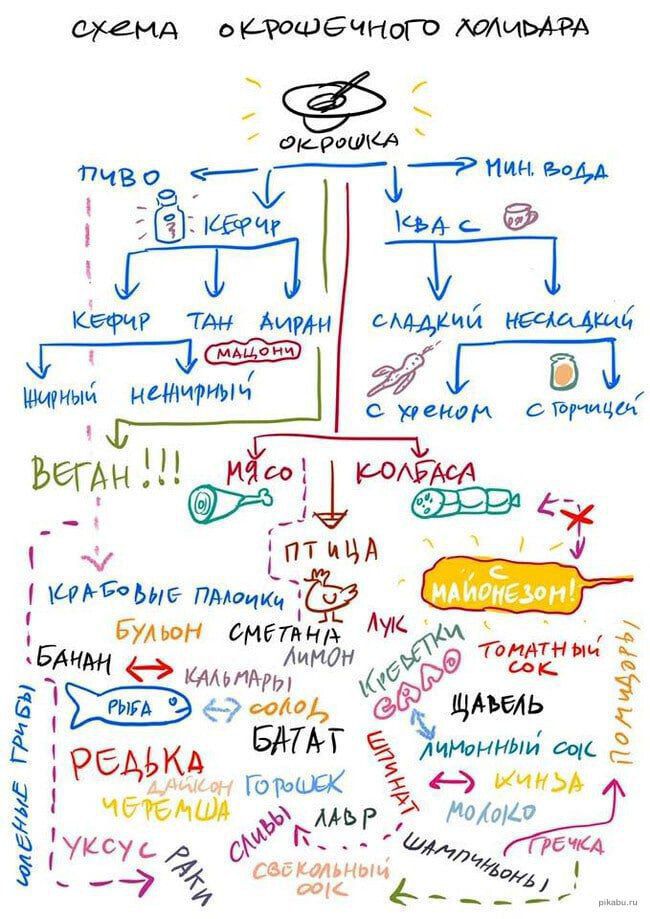 СХЕМА ОКРОШЕЧНОГО ХОЛИВАРА
ОКРОШКА
ПИВО
МИН. ВОДА
КЕФИР
КВАС
КЕФИР ТАН АЙРАН
СЛАДКИЙ НЕСЛАДКИЙ
МАЦОНИ
ЖИРНЫЙ НЕЖИРНЫЙ
С ХРЕНОМ С ГОРЧИЦЕЙ
ВЕГАН!!!
МЯСО КОЛБАСА
ПТИЦА
С МАЙОНЕЗОМ!
КРАБОВЫЕ ПАЛОЧКИ
БУЛЬОН СМЕТАНА ЛУК
ЛИМОН
КРЕВЕТКИ
ТОМАТНЫЙ СОК
БАНАН
КАЛЬМАРЫ
САЛО
ПОМИДОРЫ
РЫБА
СОЛОД
ЩАВЕЛЬ
СОЛЕНЫЕ ГРИБЫ
БАТАТ
ЛИМОННЫЙ СОК
РЕДЬКА
ДАЙКОН
ГОРОШЕК
ШПИНАТ
КИНЗА
ЧЕРЕМША
МОЛОКО
ЛАВР
СЛИВЫ
УКСУС
РАКИ
СВЕКОЛЬНЫЙ СОК
ШАМПИНЬОНЫ
ГРЕЧКА
pikabu.ru